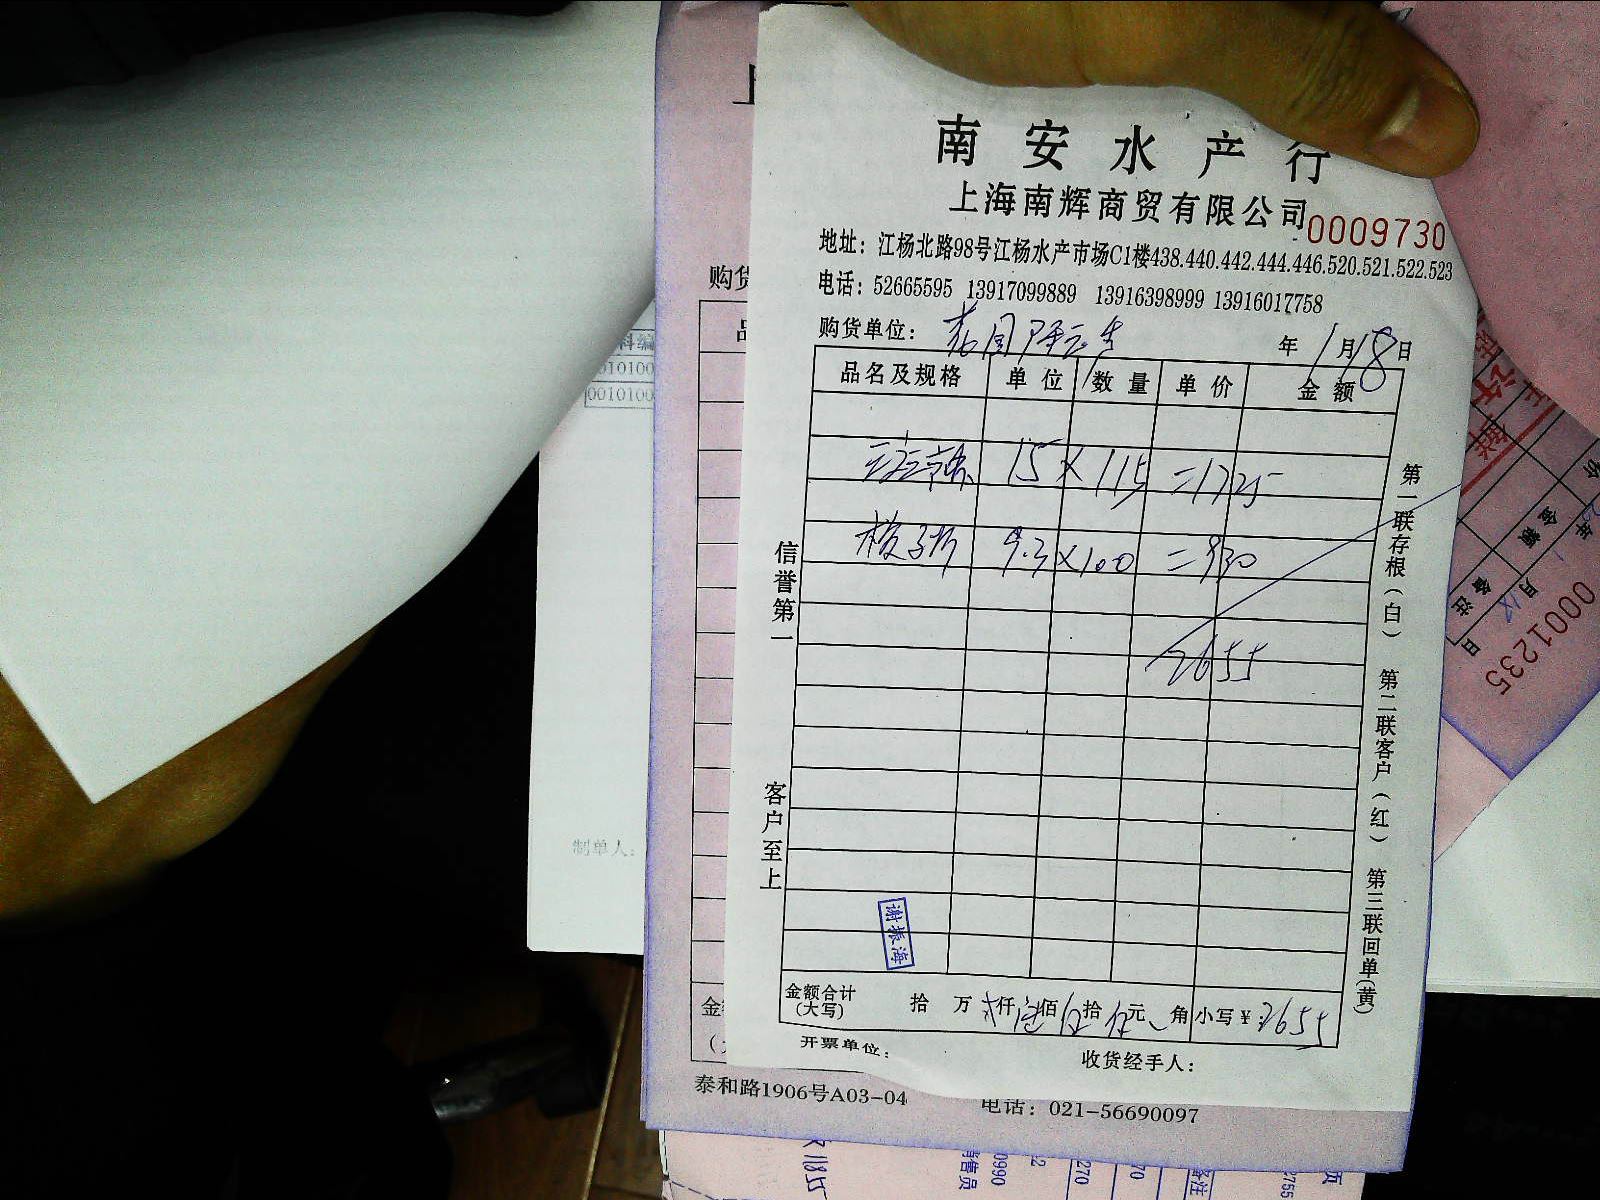 南安水产行
上海南辉商贸有限公司
0009730
地址：江杨北路98号江杨水产市场C1楼438.440.442.444.446.520.521.522.523
电话：52665595 13917099889 13916398999 13916017758
购货单位：
年 1月18日
品名及规格 单位 数量 单价 金额
15×115=1725
9.3×100=930
2655
信誉第一
客户至上
第一联存根（白） 第二联客户（红） 第三联回单（黄）
谢振海
金额合计(大写) 拾 万 仟陆佰伍拾伍元 角 小写￥：2655
开票单位： 收货经手人：
泰和路1906号A03-04 电话：021-56690097
购货
料编
0010100
0010100
制单人：
0001235
年 月18日
金额
备注